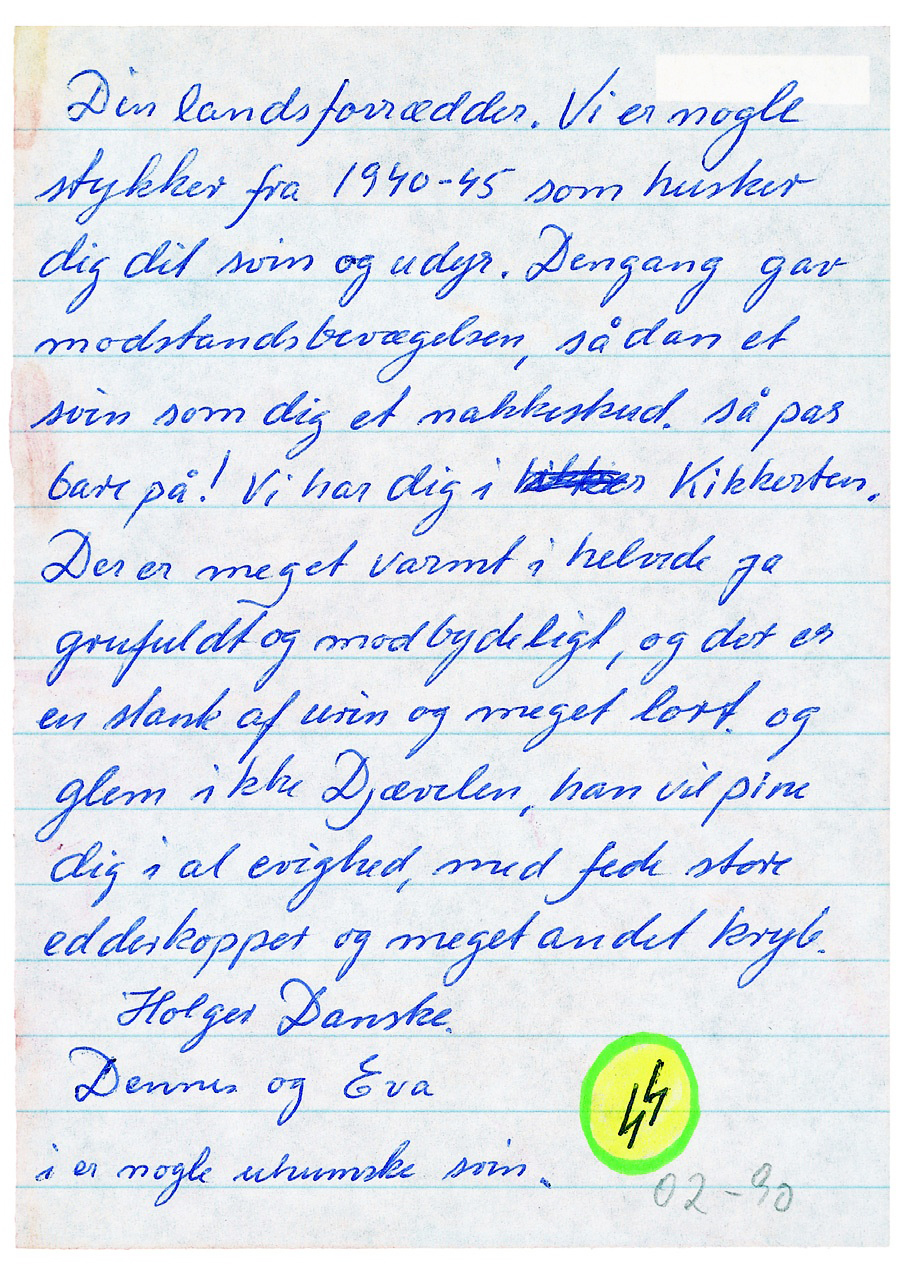 Din landsforrædder. Vi er nogle
stykker fra 1940-45 som husker
dig dit svin og udyr. Dengang gav
modstandsbevægelsen, sådan et
svin som dig et nakkeskud. så pas
bare på! Vi har dig i Kikkerten.
Der er meget varmt i helvede ja
grufuldt og modbydeligt, og der er
en stank af urin og meget lort. og
glem ikke Djævelen, han vil pine
dig i al evighed, med fede store
edderkopper og meget andet kryb.
Holger Danske.
Dennis og Eva
i er nogle uhumske svin.
SS
02-90